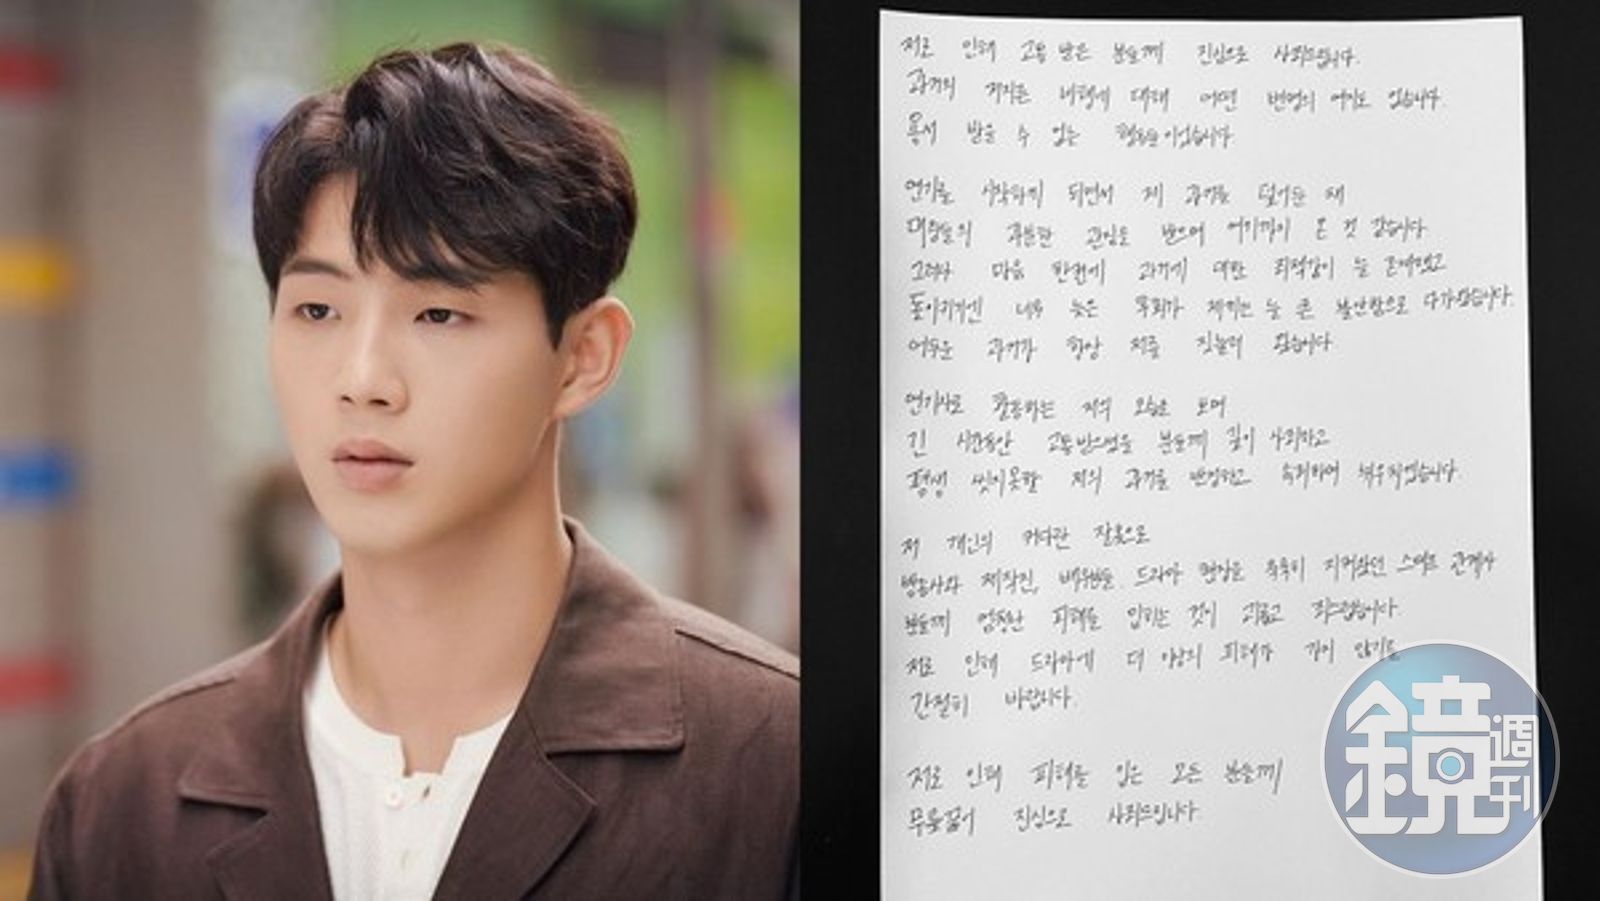 저로 인해 고통 받은 분들께 진심으로 사죄드립니다.
과거의 저지른 비행에 대해 어떤 변명의 여지도 없습니다.
용서 받을 수 없는 행동들이었습니다.
연기를 시작하게 되면서 제 과거를 덮어둔 채
대중들의 과분한 관심을 받으며 여기까지 온 것 같습니다.
그러나 마음 한켠에 과거에 대한 죄책감이 늘 존재했고
돌이키기엔 너무 늦은 후회가 저에게는 늘 큰 불안함으로 다가왔습니다.
어두운 과거가 항상 저를 짓눌러 왔습니다.
연기자로 활동하는 저의 모습을 보며
긴 시간동안 고통 받으셨을 분들께 깊이 사죄하고
평생 씻지못할 저의 과거를 반성하고 속죄하며 채우치겠습니다.
저 개인의 커다란 잘못으로
방송사와 제작진, 배우들, 드라마 현장을 묵묵히 지켜왔던 스태프 관계자
분들께 엄청난 피해를 입히는 것이 괴롭고 죄스럽습니다.
저로 인해 드라마에 더 이상의 피해가 가지 않기를
간절히 바랍니다.
저로 인해 피해를 입은 모든 분들께
무릎꿇어 진심으로 사죄드립니다
鏡週刊